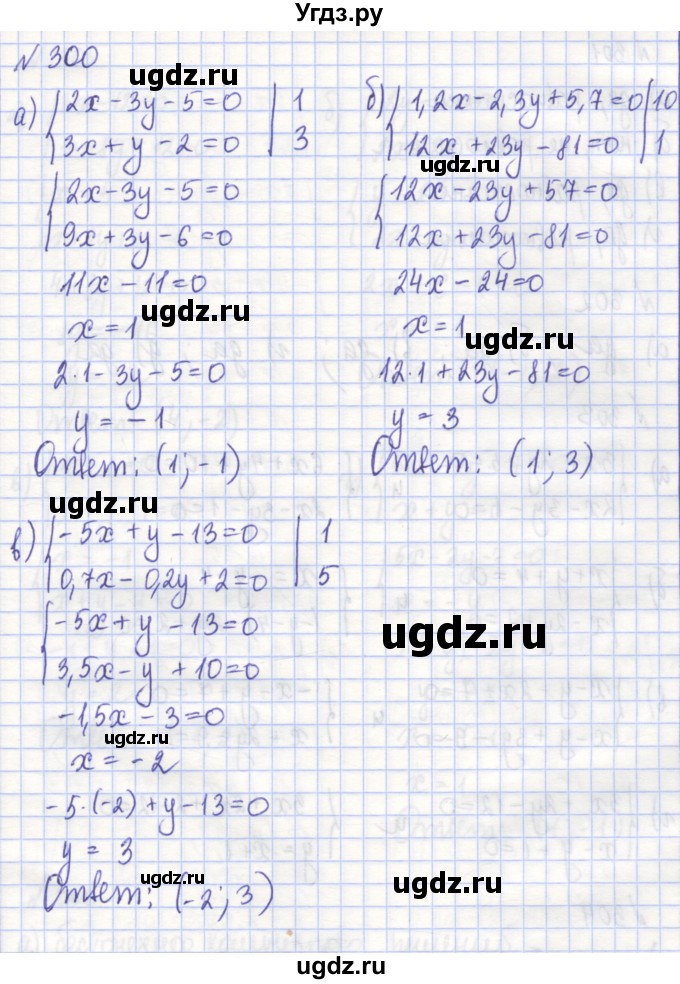 Угдз.ру
№ 300
ugdz.ru
а) { 2x - 3y - 5 = 0 | 1
3x + y - 2 = 0 | 3
{ 2x - 3y - 5 = 0
9x + 3y - 6 = 0
11x - 11 = 0
ugdz.ru
x = 1
2·1 - 3y - 5 = 0
y = -1
Ответ: (1; -1)
ugdz.ru
б) { 1,2x - 2,3y + 5,7 = 0 | 10
12x + 23y - 81 = 0 | 1
ugdz.ru
{ 12x - 23y + 57 = 0
12x + 23y - 81 = 0
24x - 24 = 0
x = 1
ugdz.ru
12·1 + 23y - 81 = 0
y = 3
Ответ: (1; 3)
в) { -5x + y - 13 = 0 | 1
0,7x - 0,2y + 2 = 0 | 5
{ -5x + y - 13 = 0
3,5x - y + 10 = 0
ugdz.ru
-1,5x - 3 = 0
ugdz.ru
x = -2
-5·(-2) + y - 13 = 0
y = 3
ugdz.ru
Ответ: (-2; 3)
ugdz.ru
ugdz.ru